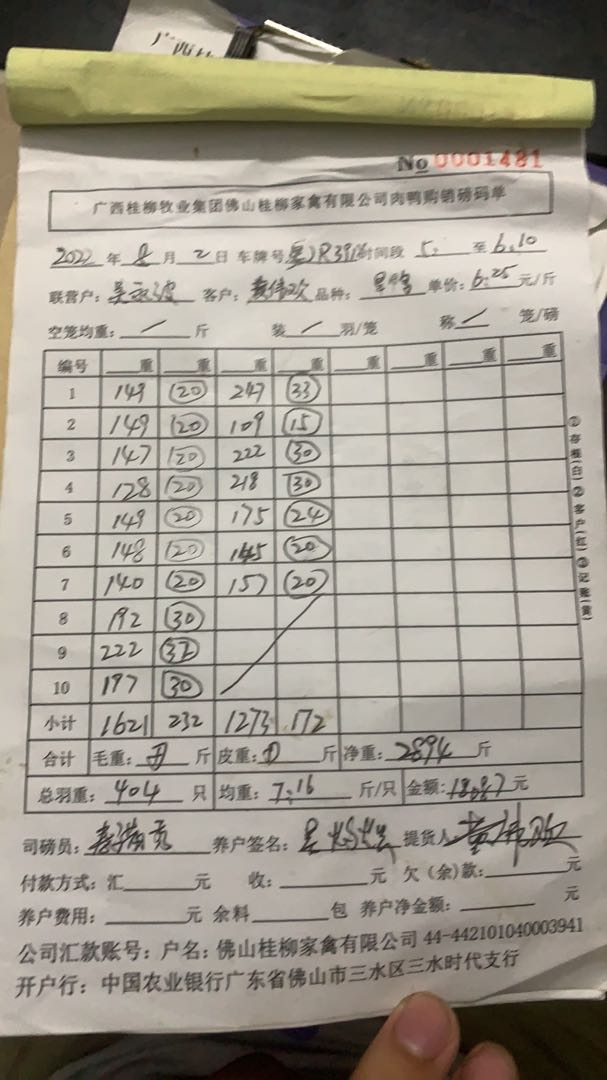 广西
No 0001481
广西桂柳牧业集团佛山桂柳家禽有限公司肉鸭购销磅码单
2022 年 8 月 2 日 车牌号 时间段 5: 至 6:10
联营户: 客户: 品种: 单价: 6.25 元/斤
空笼均重: / 斤 装 / 羽/笼 称 / 笼/磅
编号 重 重 重 重 重 重 重 重
1 149 20 247 33
2 149 20 109 15
3 147 20 222 30
4 128 20 218 30
5 149 20 175 24
6 148 20 145 20
7 140 20 157 20
8 192 30
9 222 32
10 197 30
小计 1621 232 1273 172
合计 毛重: 斤 皮重: 斤 净重: 2894 斤
总羽重: 404 只 均重: 7.16 斤/只 金额: 18087 元
司磅员: 养户签名: 提货人
付款方式: 汇 元 收: 元 欠(余)款: 元
养户费用: 元 余料 包 养户净金额: 元
公司汇款账号: 户名: 佛山桂柳家禽有限公司 44-442101040003941
开户行: 中国农业银行广东省佛山市三水区三水时代支行
①存根(白)②客户(红)③记账(黄)